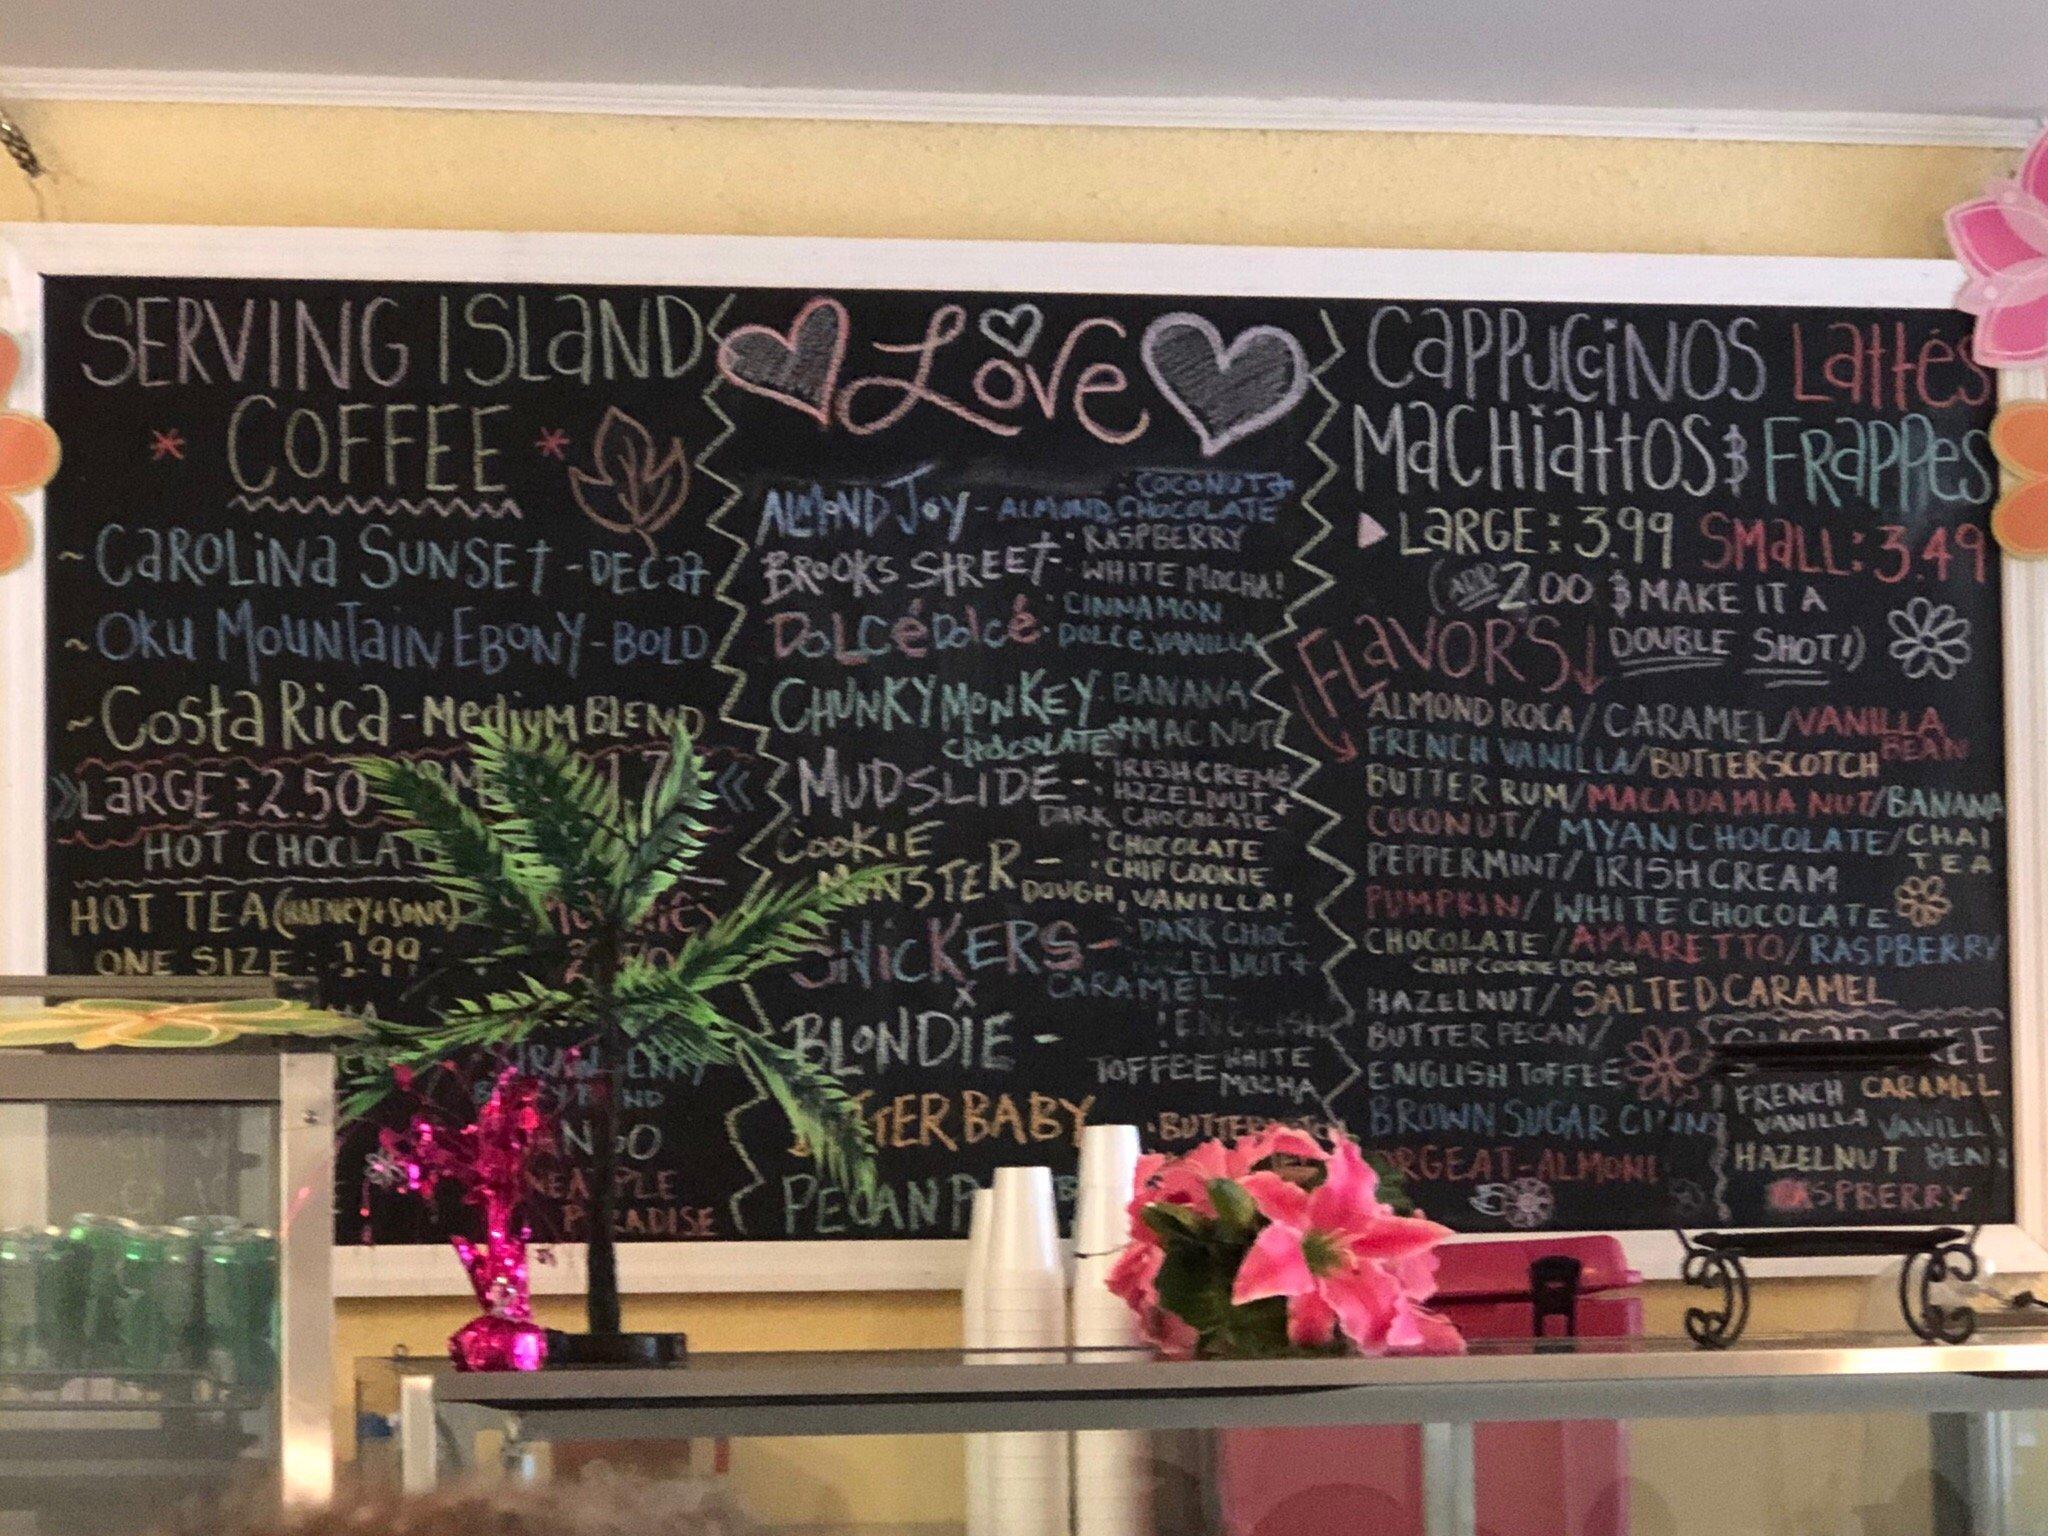 SERVING ISLAND
COFFEE
~ CAROLINA SUNSET - DECAF
~ OKU MOUNTAIN EBONY - BOLD
~ COSTA RICA - MEDIUM BLEND
LARGE : 2.50
HOT CHOCLAT
HOT TEA (HARNEY + SONS)
ONE SIZE : 1.99
PARADISE
Love
ALMOND JOY - ALMOND, CHOCOLATE
COCONUT +
BROOKS STREET - RASPBERRY
WHITE MOCHA!
DOLCé DOLCé - CINNAMON
DOLCE, VANILLA
CHUNKY MONKEY - BANANA
CHOCOLATE + MAC NUT
MUDSLIDE - IRISH CREME
HAZELNUT +
DARK CHOCOLATE
COOKIE
MONSTER - CHOCOLATE
CHIP COOKIE
DOUGH, VANILLA!
SNICKERS - DARK CHOC.
HAZELNUT +
CARAMEL
x
BLONDIE - ENGLISH
TOFFEE WHITE
MOCHA
BABY
PECAN
CAPPUCCINOS LATTéS
MACHIATTOS & FRAPPES
LARGE: 3.99 SMALL: 3.49
(ADD 2.00 & MAKE IT A
DOUBLE SHOT!)
FLAVORS ↓
ALMOND ROCA / CARAMEL / VANILLA
BEAN
FRENCH VANILLA / BUTTERSCOTCH
BUTTER RUM / MACADAMIA NUT / BANANA
COCONUT / MYAN CHOCOLATE / CHAI
TEA
PEPPERMINT / IRISH CREAM
PUMPKIN / WHITE CHOCOLATE
CHOCOLATE / AMARETTO / RASPBERRY
CHIP COOKIE DOUGH
HAZELNUT / SALTED CARAMEL
BUTTER PECAN /
ENGLISH TOFFEE
BROWN SUGAR CINN
ORGEAT - ALMOND
SUGAR FREE
FRENCH CARAMEL
VANILLA VANILLA
HAZELNUT BEAN
RASPBERRY